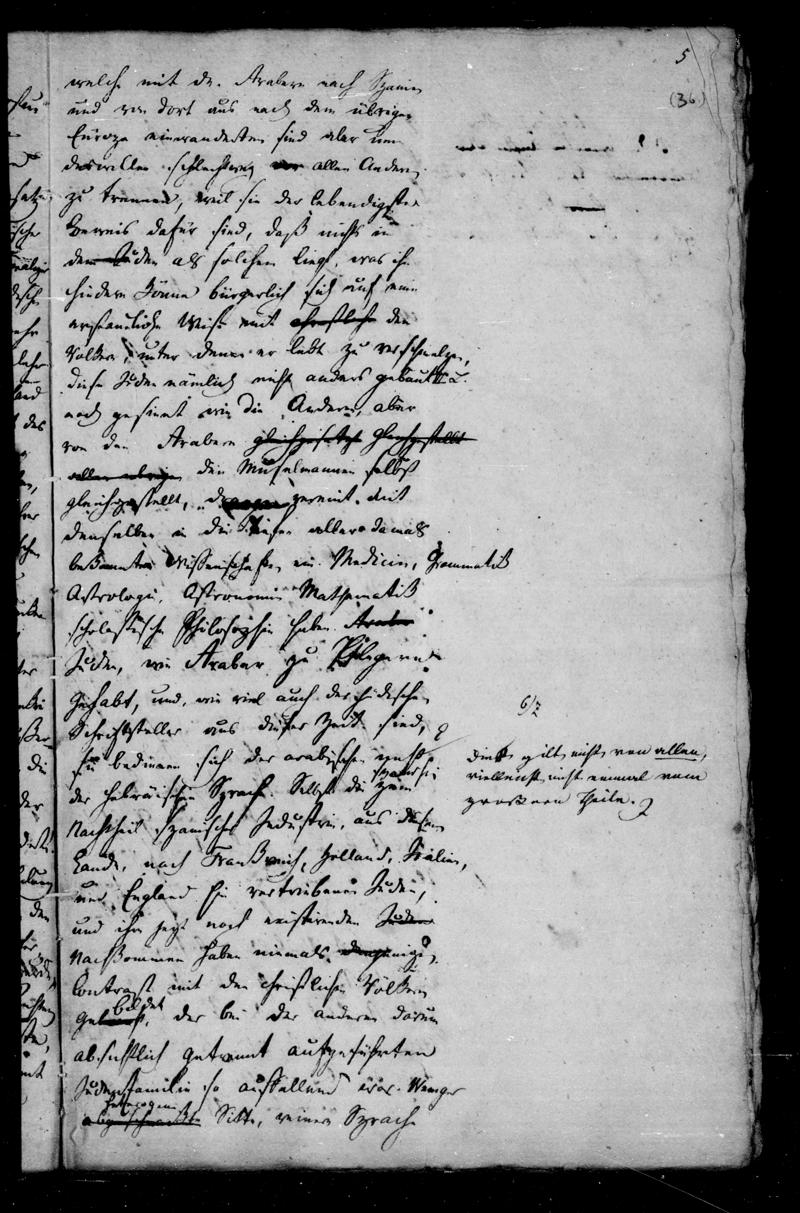 5
(36)
welche mit den Arabern nach Spanien
und von dort aus nach dem übrigen
Europa einwanderten sind aber um
deswillen schlechtweg von allen Andern
zu trennen, weil sie der lebendigste
Beweis dafür sind, daß nichts in
dem Juden als solchen liegt, was ihn
hindern könne bürgerlich sich auf eine
erstaunliche Weise mit christlich den
Völkern, unter denen er lebt zu verschmelzen,
diese Juden nämlich nicht anders gebaut u.
noch gesinnt wie die Andern, aber
von den Arabern gleichgesetzt gleichgestellt
allen übrigen den Muselmannen selbst
gleichgestellt, gereint mit
denselben in die Tiefen aller damals
bekannten Wissenschaften ein. Medicin, Grammatik
Astrologie, Astronomie Mathematik
scholastische Philosophie haben Araber
Juden, wie Araber zu Pflegern
gehabt, und, wie viel auch der jüdischen
Schriftsteller aus dieser Zeit sind,
sie bedienen sich der arabischen nicht
der hebräischen Sprache. Selbst die zum
Nachtheil spanischer Industrie, aus diesem
Lande, nach Frankreich, Holland, Italien,
und England hin vertriebenen Juden,
und ihre jetzt noch existirenden Juden
Nachkommen haben niemals denjenigen
Contrast mit den christlichen Völkern
gebildet, der bei der anderen darum
absichtlich getrennt aufgeführten
Judenfamilie so auffallend war. Weniger
heterogene
abgeschmackte Sitte, reinere Sprache
6/z
dieß gilt nicht von allen,
vielleicht nicht einmal vom
grösseren Theile.